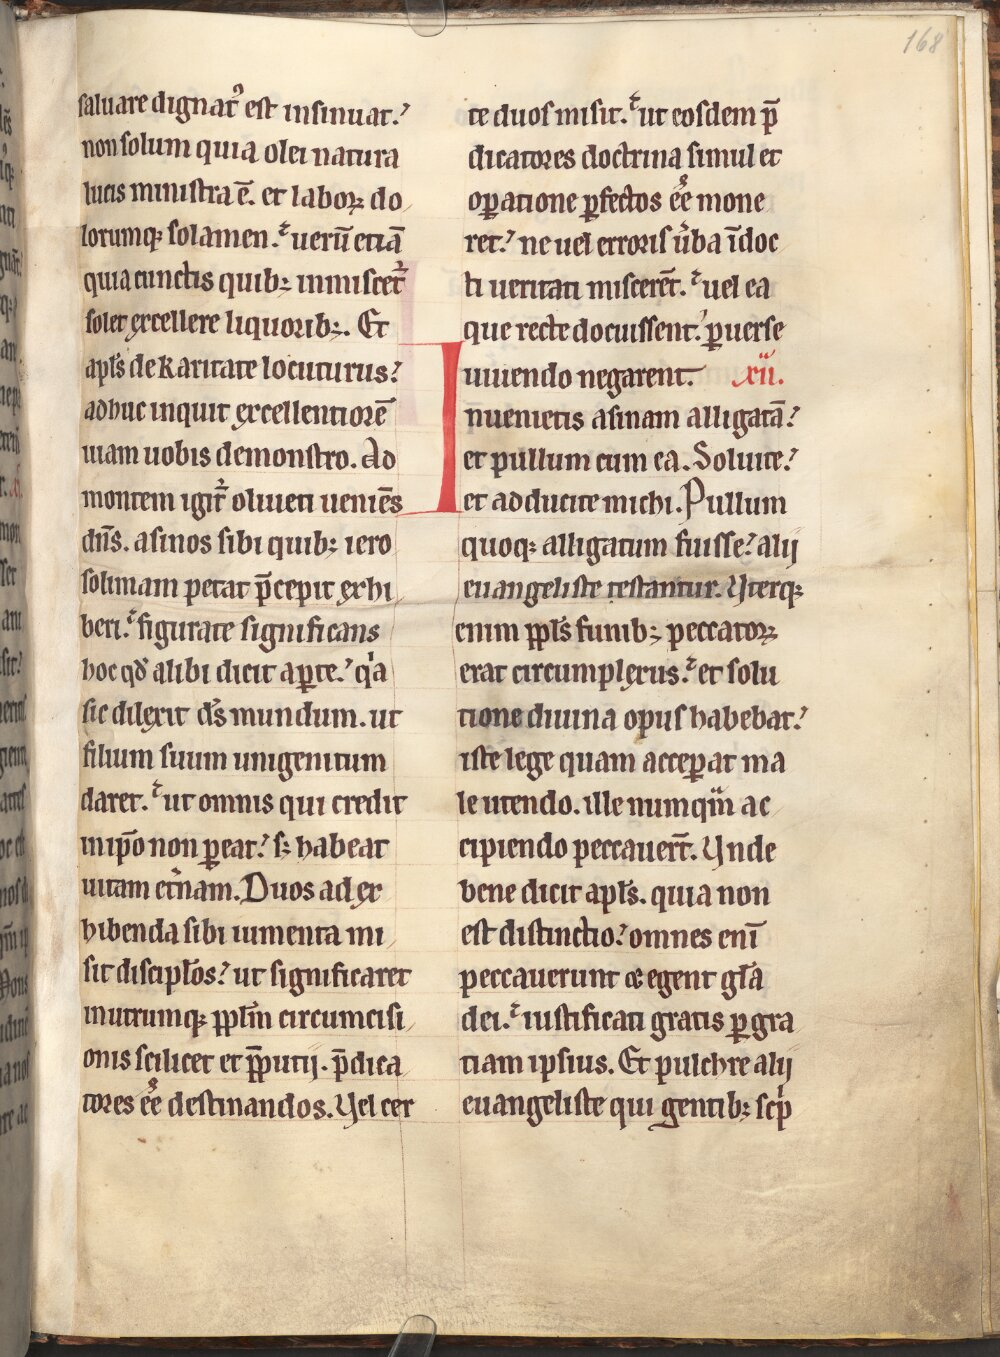 168
saluare dignat᷑ est insinuat.
non solum quia olei natura
lucis ministra ē. et laboꝝ do
lorumqꝫ solamen. uerū etiā
quia cunctis quibꝫ inmiscet᷑
solet excellere liquoribꝫ. Et
apl̄s de karitate locuturus?
adhuc inquit excellentiorē
uiam uobis demonstro. Ad
montem igit᷑ oliueti ueniēs
dn̄s. asinos sibi quibꝫ iero
solimam petat p̄cepit exhi
beri. figurate significans
hoc qd̄ alibi dicit aꝑte? qͥa
sic dilexit ds̄ mundum. ut
filium suum unigenitum
daret. ut omnis qui credit
in ip̄o non ꝑeat? sꝫ habeat
uitam et̄nam. Duos ad ex
hibenda sibi iumenta mi
sit discipl̄os? ut significaret
in utrumqꝫ ppl̄m circumcisi
onis scilicet et p̄putij. p̄dica
tores ēē destinandos. Vel cer
te duos misit. ut eosdem p̄
dicatores doctrina simul et
oꝑatione ꝑfectos ēē mone
ret? ne uel erroris u̇ba īdoc
ti ueritati miscerēt. uel ea
que recte docuissent? ꝑuerse
uiuendo negarent. xii.
Inuenietis asinam alligatā?
et pullum cum ea. Soluite?
et adducite michi. Pullum
quoqꝫ alligatum fuisse? alij
euangeliste testantur. Vterqꝫ
enim ppl̄s funibꝫ peccatoꝝ
erat circumplexus. et solu
tione diuina opus habebat?
iste lege quam acceꝑat ma
le utendo. ille numqm̄ ac
cipiendo peccauer̄t. Vnde
bene dicit apl̄s. quia non
est distinctio? omnes enī
peccauerunt & egent gl̄a
dei. iustificati gratis ꝑ gra
tiam ipsius. Et pulchre alij
euangeliste qui gentibꝫ scͥp